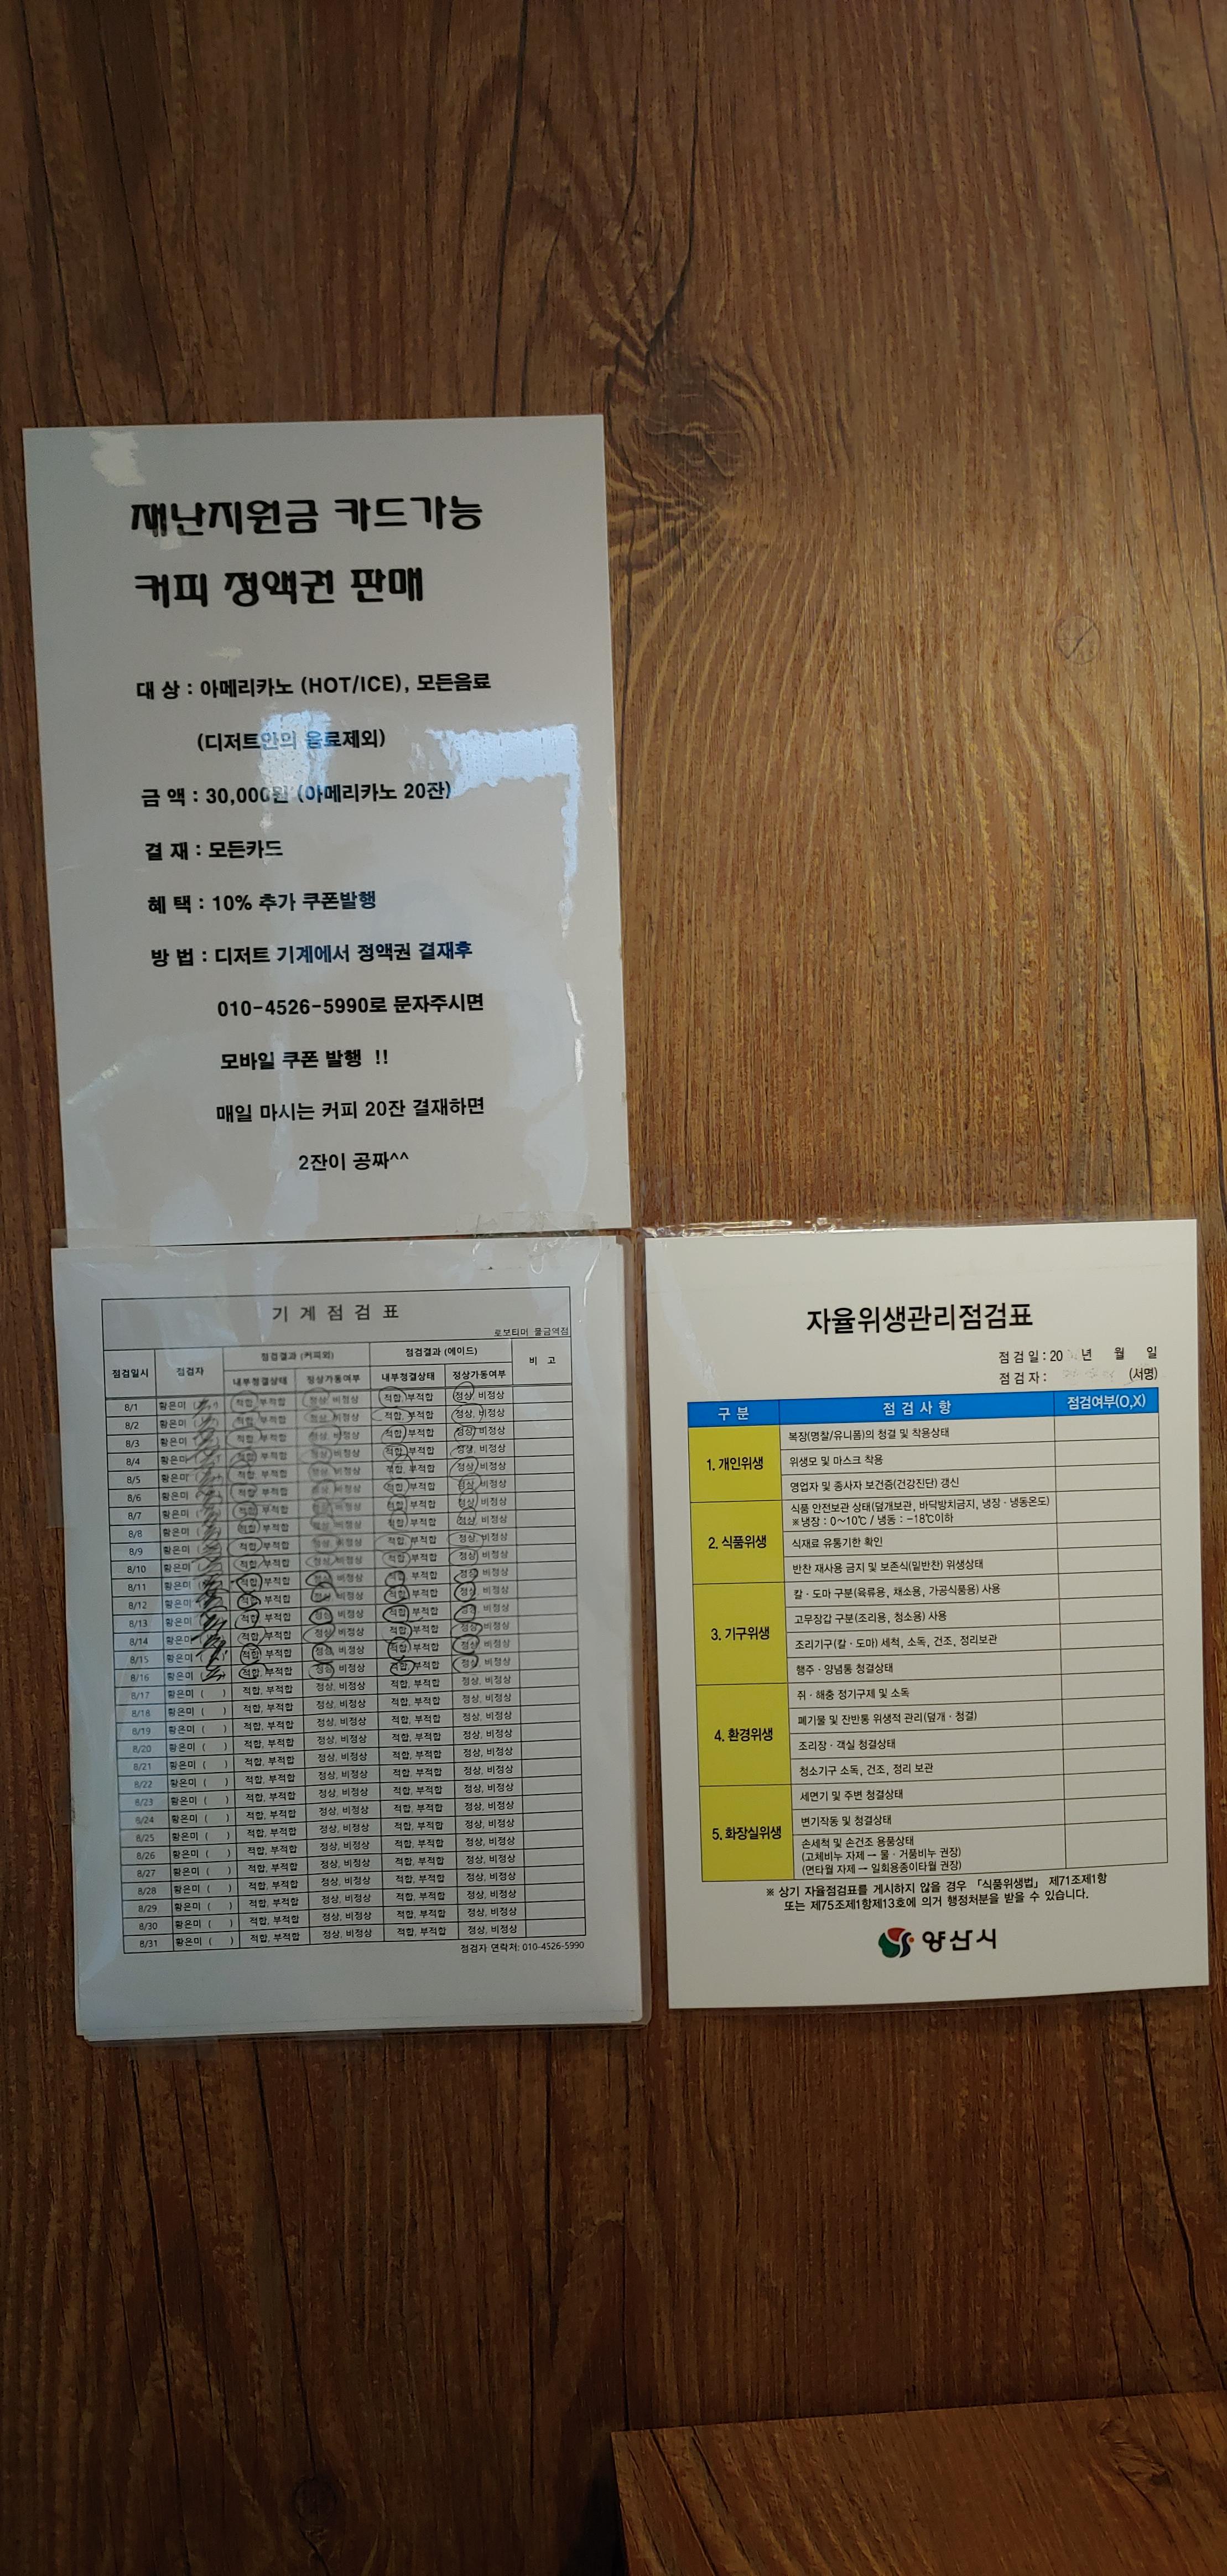 재난지원금 카드가능
커피 정액권 판매
대 상 : 아메리카노 (HOT/ICE), 모든음료
(디저트안의 음료제외)
금 액 : 30,000원 (아메리카노 20잔)
결 재 : 모든카드
혜 택 : 10% 추가 쿠폰발행
방 법 : 디저트 기계에서 정액권 결재후
010-4526-5990로 문자주시면
모바일 쿠폰 발행 !!
매일 마시는 커피 20잔 결재하면
2잔이 공짜^^
기 계 점 검 표
로보티미 물금역점
점검일시 점검자 점검결과 (커피외) 점검결과 (에이드) 비 고
내부청결상태 정상가동여부 내부청결상태 정상가동여부
8/1 황은미 적합, 부적합 정상, 비정상 적합, 부적합 정상, 비정상
8/2 황은미 적합, 부적합 정상, 비정상 적합, 부적합 정상, 비정상
8/3 황은미 적합, 부적합 정상, 비정상 적합, 부적합 정상, 비정상
8/4 황은미 적합, 부적합 정상, 비정상 적합, 부적합 정상, 비정상
8/5 황은미 적합, 부적합 정상, 비정상 적합, 부적합 정상, 비정상
8/6 황은미 적합, 부적합 정상, 비정상 적합, 부적합 정상, 비정상
8/7 황은미 적합, 부적합 정상, 비정상 적합, 부적합 정상, 비정상
8/8 황은미 적합, 부적합 정상, 비정상 적합, 부적합 정상, 비정상
8/9 황은미 적합, 부적합 정상, 비정상 적합, 부적합 정상, 비정상
8/10 황은미 적합, 부적합 정상, 비정상 적합, 부적합 정상, 비정상
8/11 황은미 적합, 부적합 정상, 비정상 적합, 부적합 정상, 비정상
8/12 황은미 적합, 부적합 정상, 비정상 적합, 부적합 정상, 비정상
8/13 황은미 적합, 부적합 정상, 비정상 적합, 부적합 정상, 비정상
8/14 황은미 적합, 부적합 정상, 비정상 적합, 부적합 정상, 비정상
8/15 황은미 적합, 부적합 정상, 비정상 적합, 부적합 정상, 비정상
8/16 황은미 적합, 부적합 정상, 비정상 적합, 부적합 정상, 비정상
8/17 황은미 ( ) 적합, 부적합 정상, 비정상 적합, 부적합 정상, 비정상
8/18 황은미 ( ) 적합, 부적합 정상, 비정상 적합, 부적합 정상, 비정상
8/19 황은미 ( ) 적합, 부적합 정상, 비정상 적합, 부적합 정상, 비정상
8/20 황은미 ( ) 적합, 부적합 정상, 비정상 적합, 부적합 정상, 비정상
8/21 황은미 ( ) 적합, 부적합 정상, 비정상 적합, 부적합 정상, 비정상
8/22 황은미 ( ) 적합, 부적합 정상, 비정상 적합, 부적합 정상, 비정상
8/23 황은미 ( ) 적합, 부적합 정상, 비정상 적합, 부적합 정상, 비정상
8/24 황은미 ( ) 적합, 부적합 정상, 비정상 적합, 부적합 정상, 비정상
8/25 황은미 ( ) 적합, 부적합 정상, 비정상 적합, 부적합 정상, 비정상
8/26 황은미 ( ) 적합, 부적합 정상, 비정상 적합, 부적합 정상, 비정상
8/27 황은미 ( ) 적합, 부적합 정상, 비정상 적합, 부적합 정상, 비정상
8/28 황은미 ( ) 적합, 부적합 정상, 비정상 적합, 부적합 정상, 비정상
8/29 황은미 ( ) 적합, 부적합 정상, 비정상 적합, 부적합 정상, 비정상
8/30 황은미 ( ) 적합, 부적합 정상, 비정상 적합, 부적합 정상, 비정상
8/31 황은미 ( ) 적합, 부적합 정상, 비정상 적합, 부적합 정상, 비정상
점검자 연락처: 010-4526-5990
자율위생관리점검표
점 검 일 : 20 년 월 일
점 검 자 : (서명)
구 분 점 검 사 항 점검여부(O,X)
1. 개인위생
복장(명찰/유니폼)의 청결 및 착용상태
위생모 및 마스크 착용
영업자 및 종사자 보건증(건강진단) 갱신
2. 식품위생
식품 안전보관 상태(덮개보관, 바닥방치금지, 냉장ㆍ냉동온도)
※냉장 : 0~10℃ / 냉동 : -18℃이하
식재료 유통기한 확인
반찬 재사용 금지 및 보존식(밑반찬) 위생상태
3. 기구위생
칼ㆍ도마 구분(육류용, 채소용, 가공식품용) 사용
고무장갑 구분(조리용, 청소용) 사용
조리기구(칼ㆍ도마) 세척, 소독, 건조, 정리보관
행주ㆍ양념통 청결상태
4. 환경위생
쥐ㆍ해충 정기구제 및 소독
폐기물 및 잔반통 위생적 관리(덮개ㆍ청결)
조리장ㆍ객실 청결상태
청소기구 소독, 건조, 정리 보관
5. 화장실위생
세면기 및 주변 청결상태
변기작동 및 청결상태
손세척 및 손건조 용품상태
(고체비누 자제 → 물ㆍ거품비누 권장)
(면타월 자제 → 일회용종이타월 권장)
※ 상기 자율점검표를 게시하지 않을 경우 「식품위생법」 제71조제1항
또는 제75조제1항제13호에 의거 행정처분을 받을 수 있습니다.
양산시